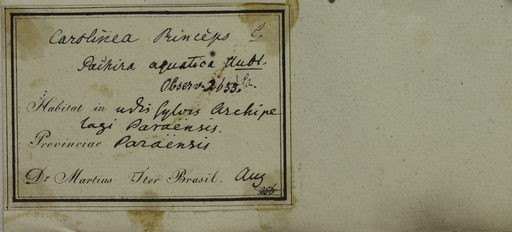 Carolinea Princeps L.
Pachira aquatica Aubl.
Observ. 2655.
Habitat in udis sylvis Archipe
lagi Paraënsis.
Provinciae Paraënsis
Dr. Martius Iter Brasil. Aug